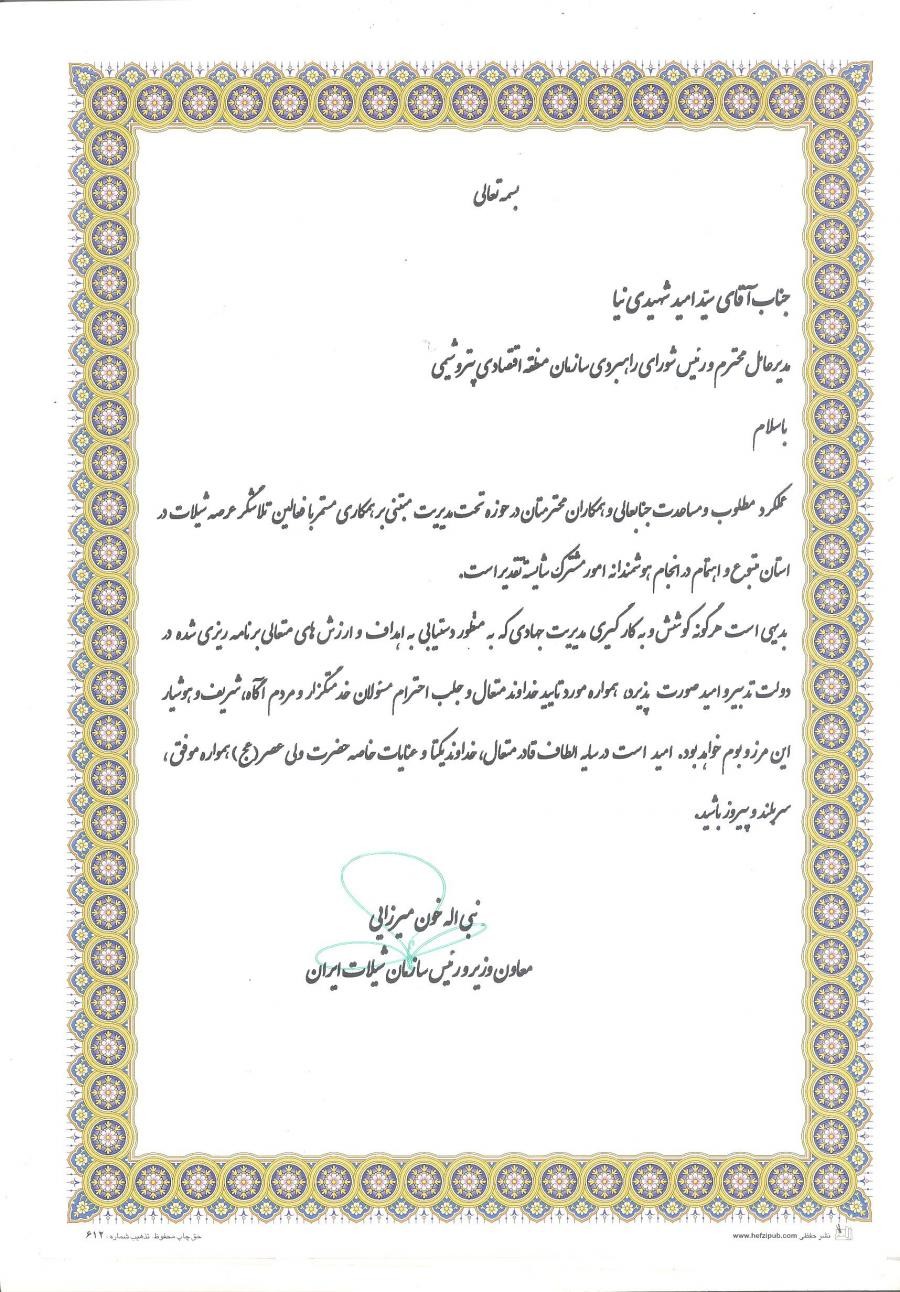 بسمه تعالی
جناب آقای سیّد امید شهیدی نیا
مدیرعامل محترم و رئیس شورای راهبردی سازمان منطقه اقتصادی پتروشیمی
باسلام
عملکرد مطلوب و مساعدت جنابعالی و همکاران محترمتان در حوزه تحت مدیریت مبتنی بر همکاری مستمر با فعالین تلاشگر عرصه شیلات در
استان متبوع و اهتمام در انجام هوشمندانه امور مشترک شایسته تقدیر است.
بدیهی است هرگونه کوشش و به کارگیری مدیریت جهادی که به منظور دستیابی به اهداف و ارزش های متعالی برنامه ریزی شده در
دولت تدبیر و امید صورت پذیرد، همواره مورد تایید خداوند متعال و جلب احترام مسئولان خدمتگزار و مردم آگاه، شریف و هوشیار
این مرز و بوم خواهد بود. امید است در سایه الطاف قادر متعال، خداوند یکتا و عنایات خاصه حضرت ولی عصر (عج) همواره موفق،
سربلند و پیروز باشید.
نبی اله خون میرزایی
معاون وزیر و رئیس سازمان شیلات ایران
نشر حفظی www.hefzipub.com
حق چاپ محفوظ. تذهیب شماره: ۶۱۲